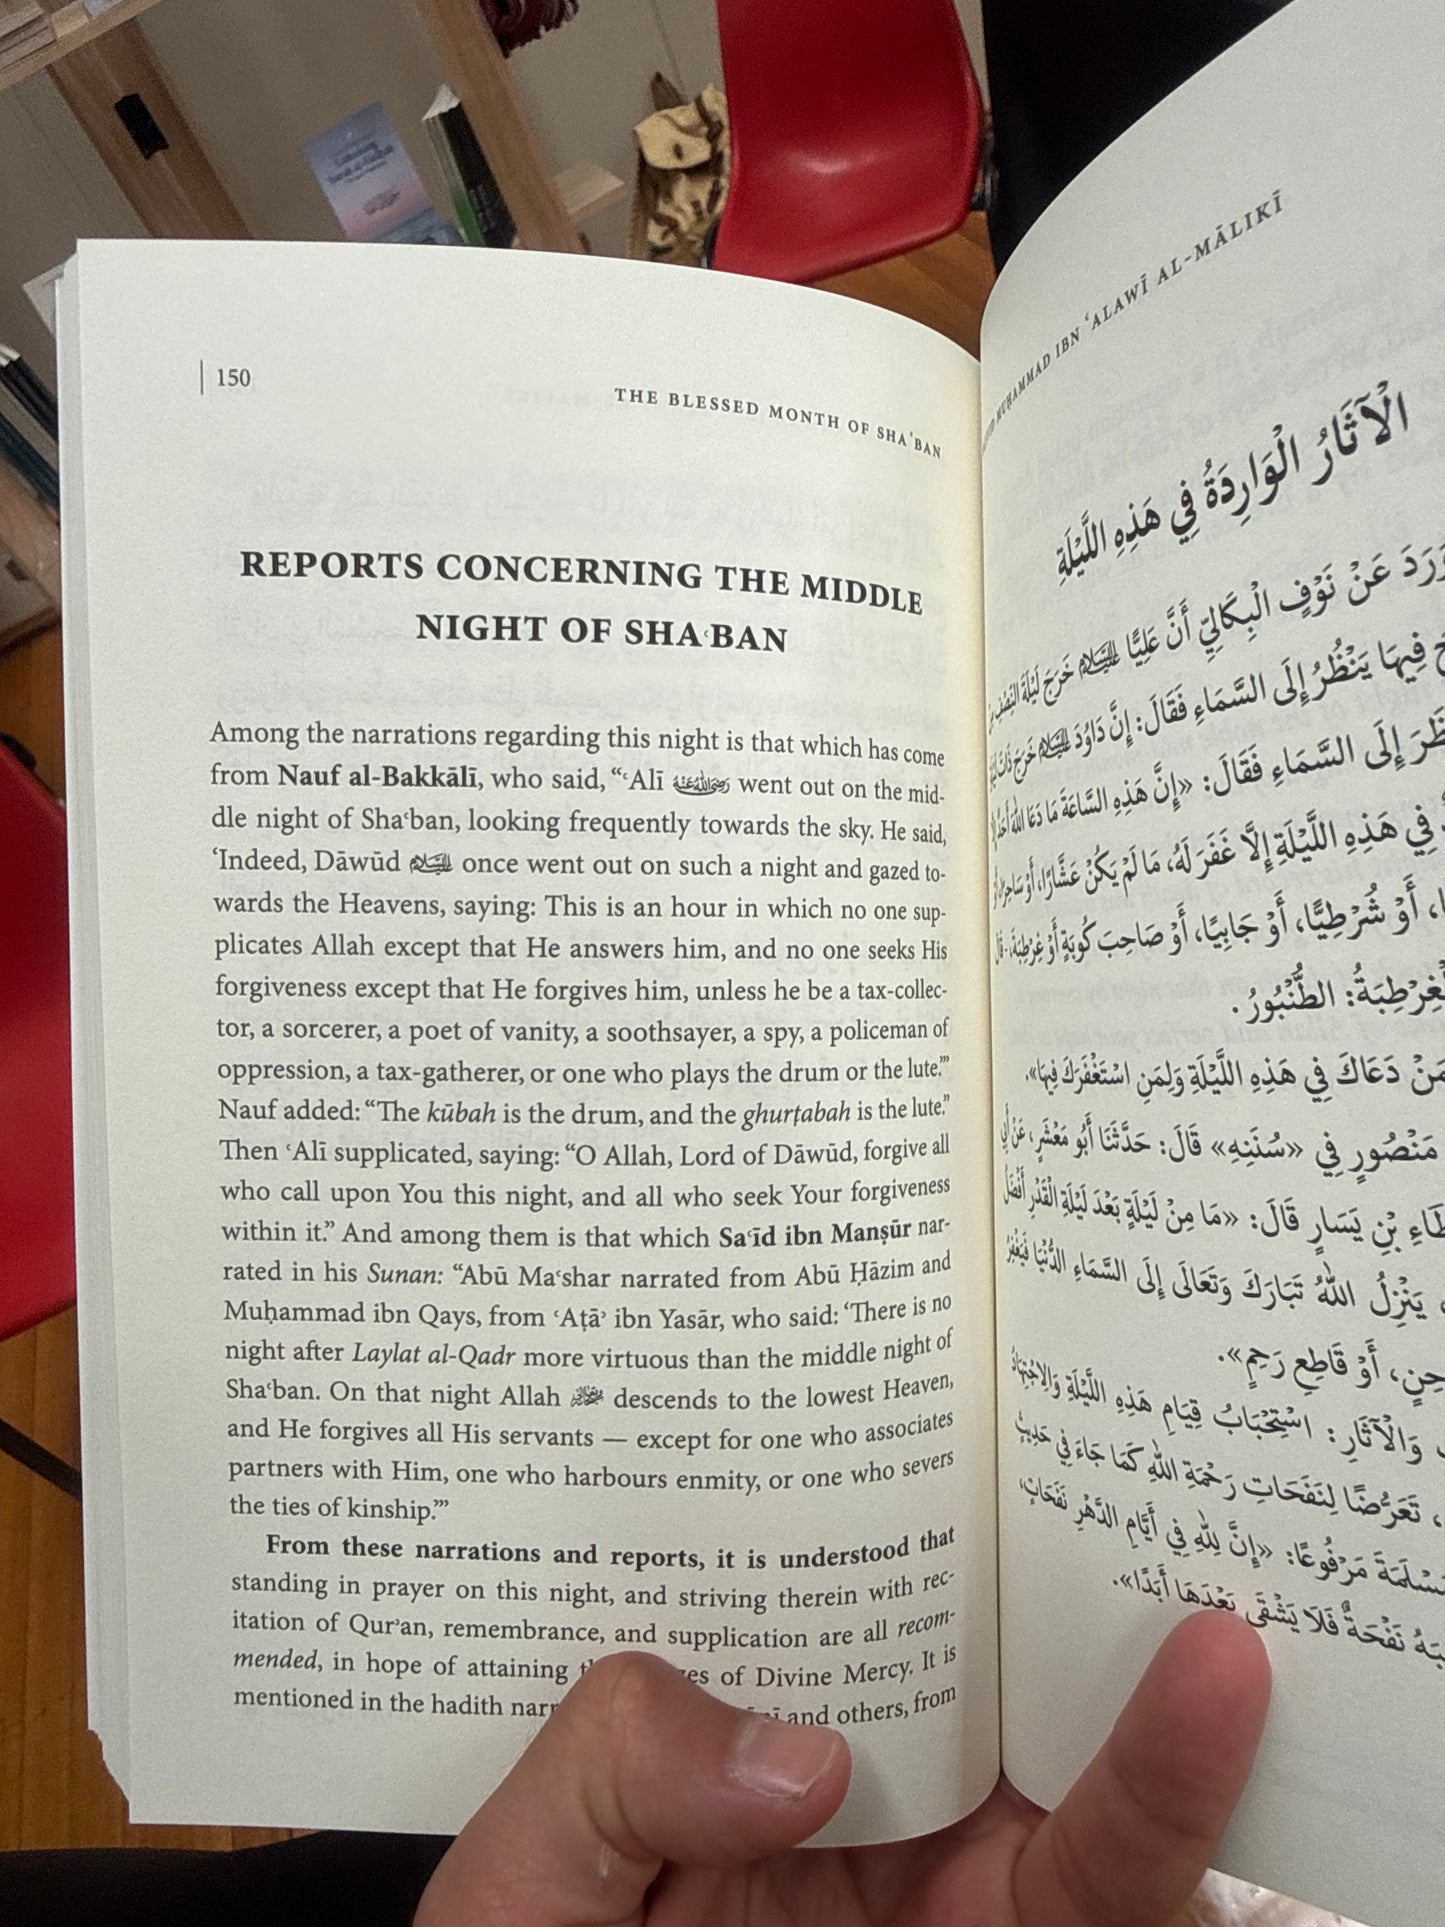 150
THE BLESSED MONTH OF SHAʿBAN
REPORTS CONCERNING THE MIDDLE
NIGHT OF SHAʿBAN
Among the narrations regarding this night is that which has come
from Nauf al-Bakkālī, who said, “ʿAlī رَضِيَ اللهُ عَنْهُ went out on the mid-
dle night of Shaʿban, looking frequently towards the sky. He said,
‘Indeed, Dāwūd عليه السلام once went out on such a night and gazed to-
wards the Heavens, saying: This is an hour in which no one sup-
plicates Allah except that He answers him, and no one seeks His
forgiveness except that He forgives him, unless he be a tax-collec-
tor, a sorcerer, a poet of vanity, a soothsayer, a spy, a policeman of
oppression, a tax-gatherer, or one who plays the drum or the lute.’”
Nauf added: “The kūbah is the drum, and the ghurṭabah is the lute.”
Then ʿAlī supplicated, saying: “O Allah, Lord of Dāwūd, forgive all
who call upon You this night, and all who seek Your forgiveness
within it.” And among them is that which Saʿīd ibn Manṣūr nar-
rated in his Sunan: “Abū Maʿshar narrated from Abū Ḥāzim and
Muḥammad ibn Qays, from ʿAṭāʾ ibn Yasār, who said: ‘There is no
night after Laylat al-Qadr more virtuous than the middle night of
Shaʿban. On that night Allah descends to the lowest Heaven,
and He forgives all His servants — except for one who associates
partners with Him, one who harbours enmity, or one who severs
the ties of kinship.’”
From these narrations and reports, it is understood that
standing in prayer on this night, and striving therein with rec-
itation of Qurʾan, remembrance, and supplication are all recom-
mended, in hope of attaining of Divine Mercy. It is
mentioned in the hadith and others, from
MUḤAMMAD IBN ʿALAWĪ AL-MĀLIKĪ
الْآثَارُ الْوَارِدَةُ فِي هَذِهِ اللَّيْلَةِ
عَنْ نَوْفٍ الْبِكَالِيِّ أَنَّ عَلِيًّا عليه السلام خَرَجَ لَيْلَةَ النِّصْفِ
فِيهَا يَنْظُرُ إِلَى السَّمَاءِ فَقَالَ: إِنَّ دَاوُدَ عليه السلام خَرَجَ ذَاتَ
إِلَى السَّمَاءِ فَقَالَ: «إِنَّ هَذِهِ السَّاعَةَ مَا دَعَا اللهَ أَحَدٌ
فِي هَذِهِ اللَّيْلَةِ إِلَّا غَفَرَ لَهُ، مَا لَمْ يَكُنْ عَشَّارًا، أَوْ سَاحِرًا،
أَوْ شُرْطِيًّا، أَوْ جَابِيًا، أَوْ صَاحِبَ كُوبَةٍ أَوْ غِرْطِبَةٍ،
الْغِرْطِبَةُ: الطُّنْبُورُ.
مَنْ دَعَاكَ فِي هَذِهِ اللَّيْلَةِ وَلِمَنِ اسْتَغْفَرَكَ فِيهَا».
مَنْصُورٍ فِي «سُنَنِهِ» قَالَ: حَدَّثَنَا أَبُو مَعْشَرٍ، عَنْ أَبِي
بْنِ يَسَارٍ قَالَ: «مَا مِنْ لَيْلَةٍ بَعْدَ لَيْلَةِ الْقَدْرِ أَفْضَلُ
يَنْزِلُ اللهُ تَبَارَكَ وَتَعَالَى إِلَى السَّمَاءِ الدُّنْيَا فَيَغْفِرُ
أَوْ قَاطِعِ رَحِمٍ».
وَالْآثَارِ: اسْتِحْبَابُ قِيَامِ هَذِهِ اللَّيْلَةِ وَالِاجْتِهَادُ
تَعَرُّضًا لِنَفَحَاتِ رَحْمَةِ اللهِ كَمَا جَاءَ فِي حَدِيثٍ
مَرْفُوعًا: «إِنَّ لِلهِ فِي أَيَّامِ الدَّهْرِ نَفَحَاتٍ،
نَفْحَةٌ فَلَا يَشْقَى بَعْدَهَا أَبَدًا».